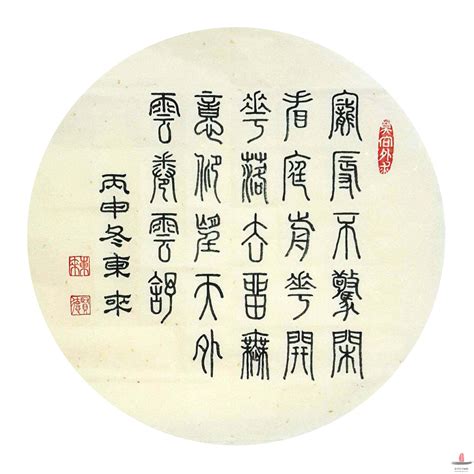 寵辱不驚閑
看庭前華開
華落去留無
意仰望天外
雲卷雲舒
丙申冬東來